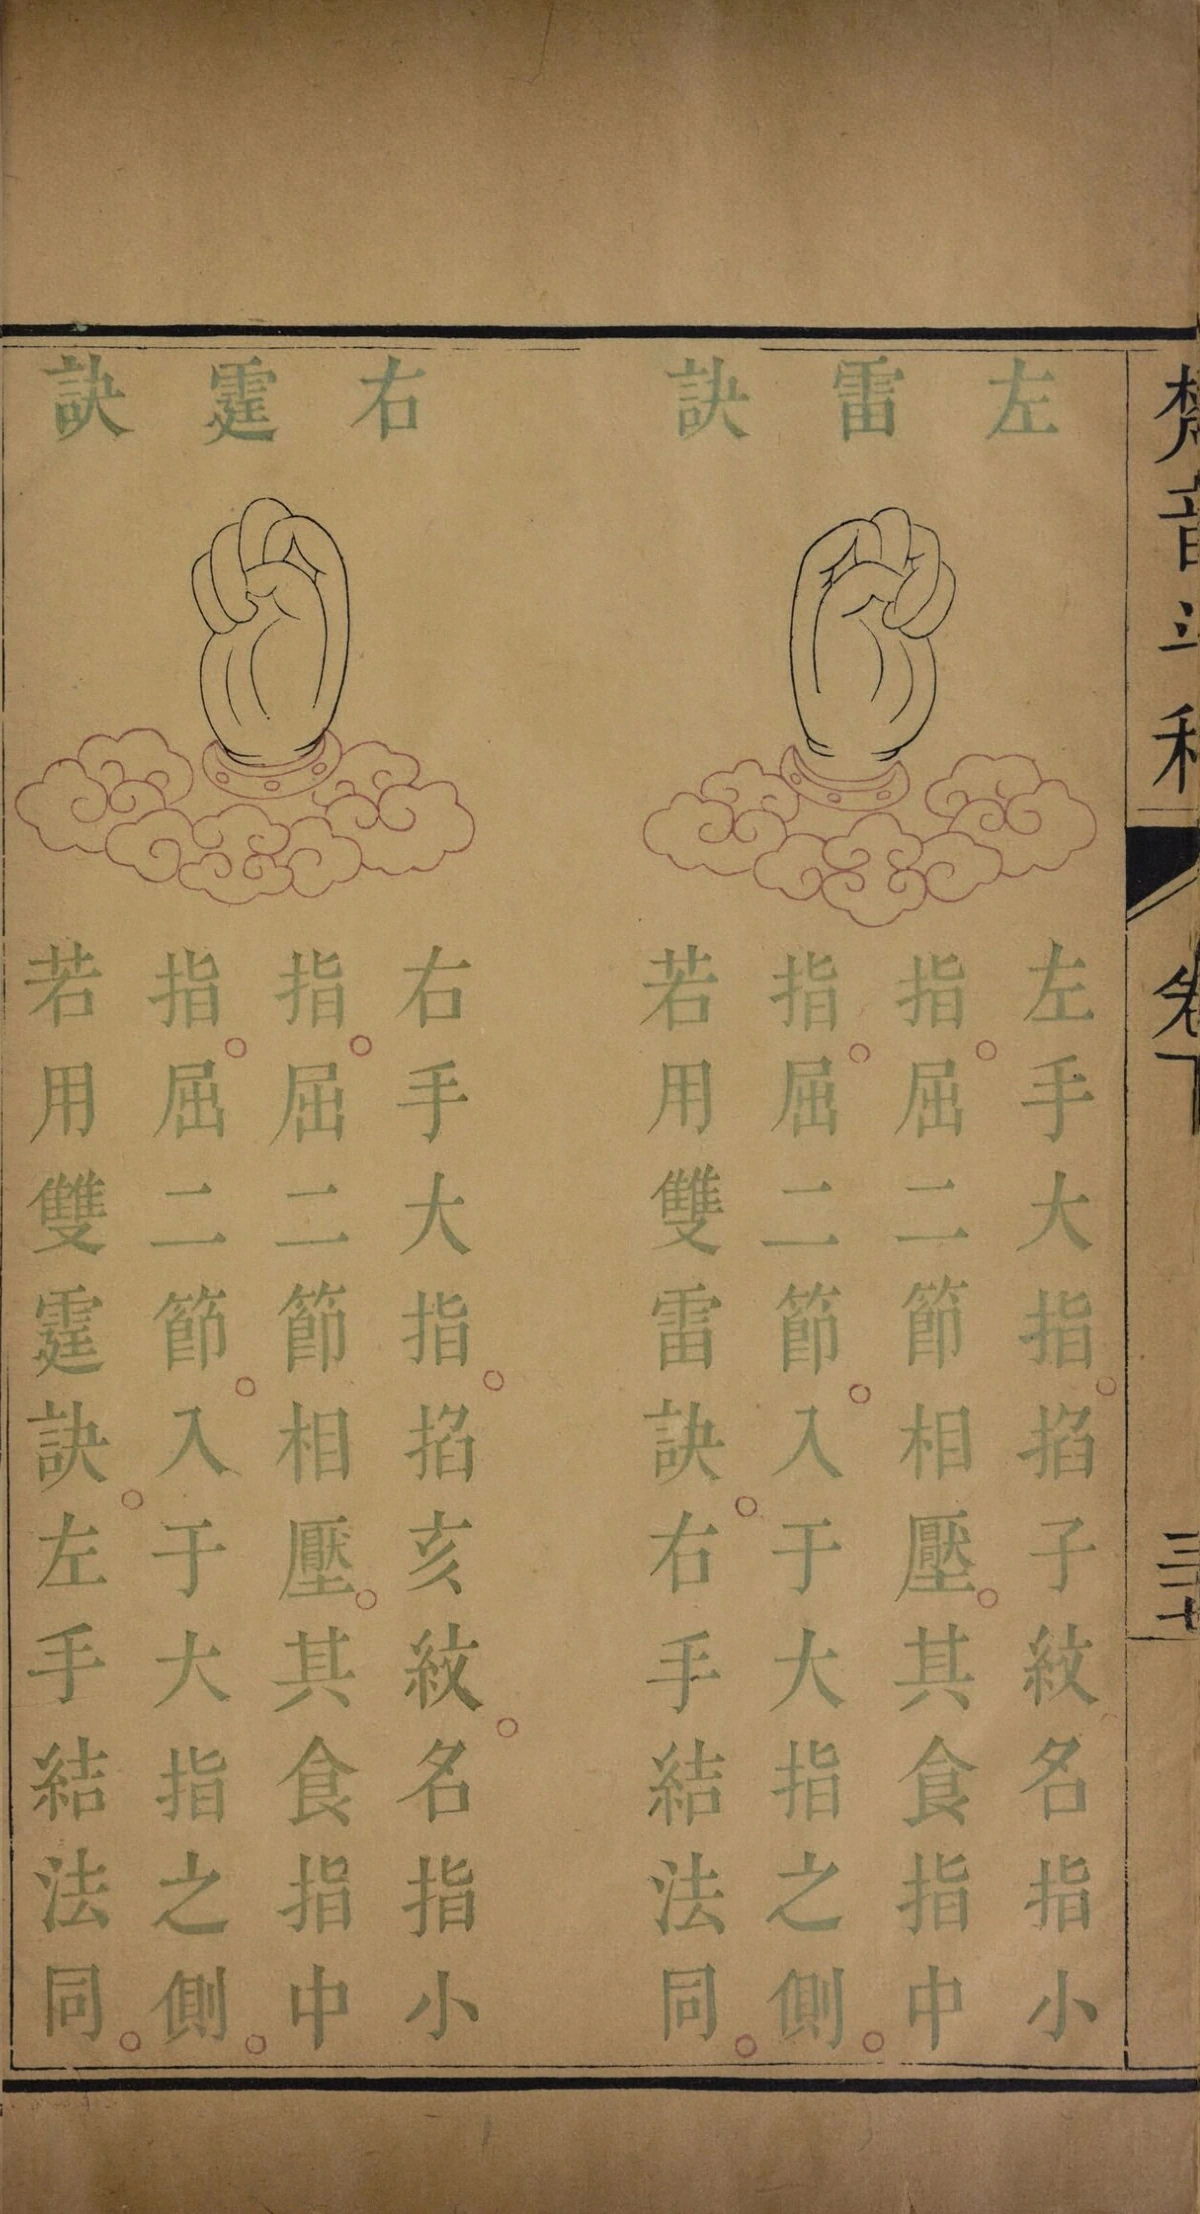 梵音斗科
卷下
三十七
左雷訣
左手大指。掐子紋名指小
指。屈二節相壓。其食指中
指。屈二節。入于大指之側。
若用雙雷訣。右手結法同。
右霆訣
右手大指。掐亥紋。名指小
指。屈二節相壓。其食指中
指。屈二節。入于大指之側。
若用雙霆訣。左手結法同。